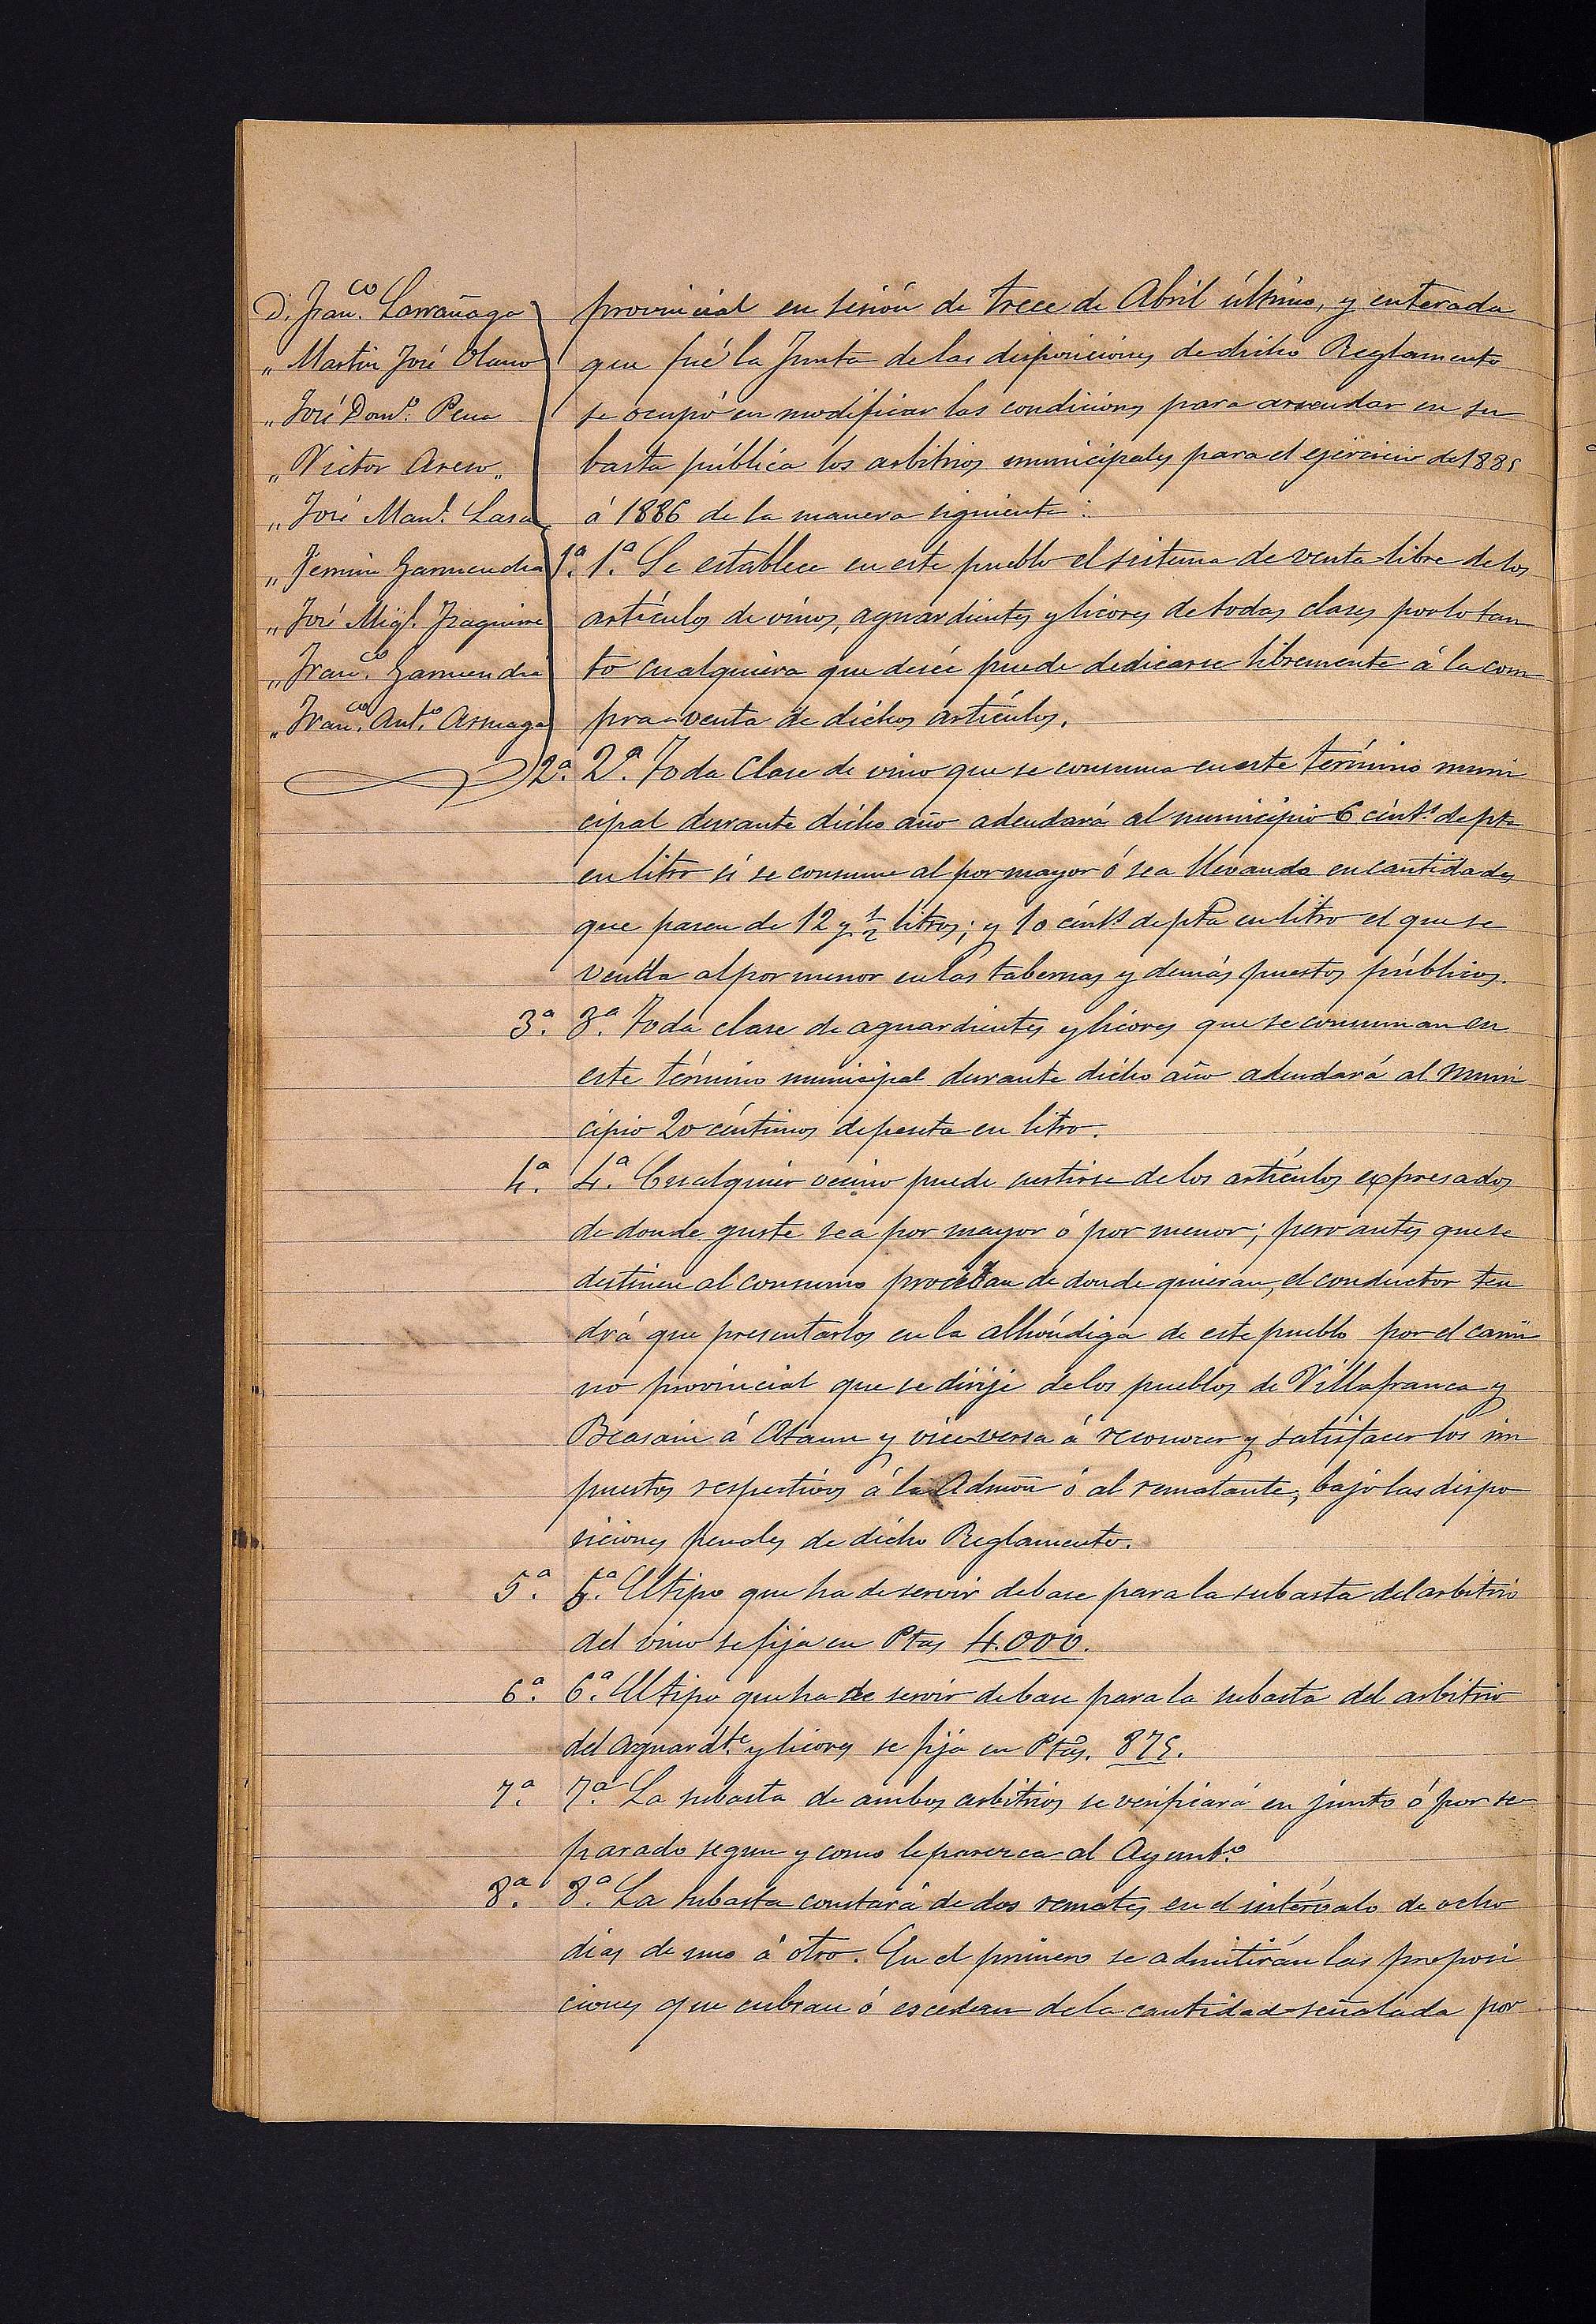 D. Fran.co Larrañaga
„ Martin José Olano
„ José Dom.o Pena
„ Victor Areso „
„ José Man.l Lasa
„ Fermin Garmendia
„ José Mig.l Iraguirre
„ Fran.co Garmendia
„ Fran.co Ant.o Asurmaga
provincial en sesión de trece de Abril último, y enterada
que fué la Junta de las disposiciones de dicho Reglamento
se ocupó en modificar las condiciones para arrendar en su
basta pública los arbitrios municipales para el ejercicio de 1885
á 1886 de la manera siguiente:
1.a 1.a Se establece en este pueblo el sistema de venta libre de los
artículos de vinos, aguardientes y licores de todas clases por lo tan
to cualquiera que deséé puede dedicarse libremente á la com
pra-venta de dichos artículos.
2.a 2.a Toda Clase de vino que se consuma en este término muni
cipal durante dicho año adeudará al municipio 6 cént.s de pta
en litro si se consume al por mayor ó sea llevando en cantidades
que pasen de 12 y 1/2 litros; y 10 cént.s de pta en litro el que se
venda al por menor en las tabernas y demás puestos públicos.
3.a 3.a Toda clase de aguardientes y licores que se consuman en
este término municipal durante dicho año adeudará al Muni
cipio 20 céntimos de peseta en litro.
4.a 4.a Cualquier vecino puede surtirse de los artículos expresados
de donde guste sea por mayor ó por menor; pero antes que se
destinen al consumo procedan de donde quieran, el conductor ten
drá que presentarlos en la alhóndiga de este pueblo por el cami
no provincial que se dirije de los pueblos de Villafranca y
Beasain á Ataun y vice-versa á reconocer y satisfacer los im
puestos respectivos á la Admon ó al rematante, bajo las dispo
siciones penales de dicho Reglamento.
5.a 5.a El tipo que ha de servir de base para la subasta del arbitrio
del vino se fija en Ptas 4.000.
6.a 6.a El tipo que ha de servir de base para la subasta del arbitrio
del Aguard.te y licores se fija en Ptas. 875.
7.a 7.a La subasta de ambos arbitrios se verificará en junto ó por se
parado segun y como le parezca al Ayunt.o
8.a 8.a La subasta constará de dos remates en el intérvalo de ocho
dias de uno á otro. En el primero se admitirán las proposi
ciones que cubran ó escedan de la cantidad señalada por